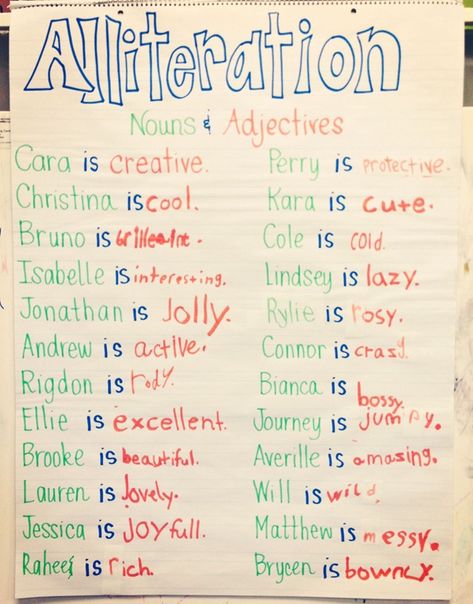 Alliteration
Nouns & Adjectives
Cara is creative.
Christina is cool.
Bruno is brilleint.
Isabelle is interesting.
Jonathan is Jolly.
Andrew is active.
Rigdon is rody.
Ellie is excellent.
Brooke is beautiful.
Lauren is lovely.
Jessica is Joyfull.
Raheeş is rich.
Perry is protective.
Kara is cute.
Cole is cold.
Lindsey is lazy.
Rylie is rosy.
Connor is crasy.
Bianca is bossy.
Journey is jumpy.
Averille is amasing.
Will is wild.
Matthew is messy.
Brycen is bowncy.